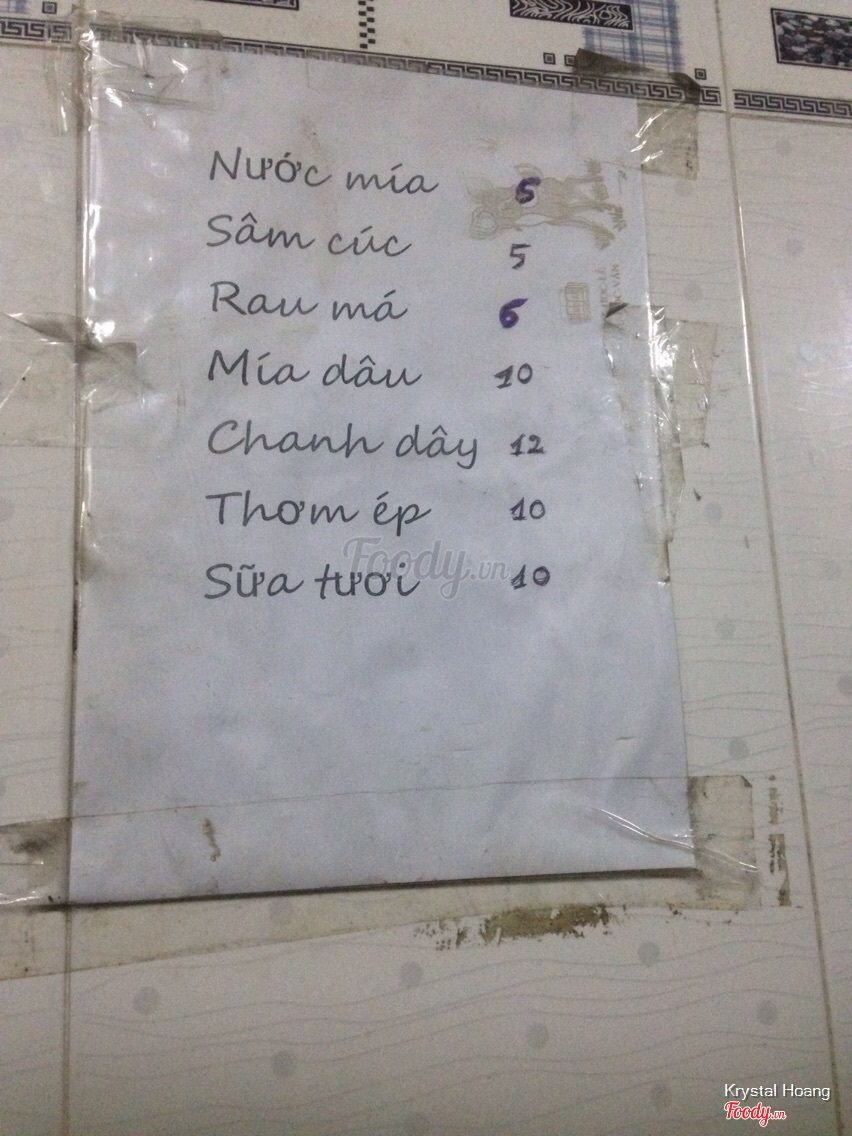 Nước mía 5
Sâm cúc 5
Rau má 6
Mía dâu 10
Chanh dây 12
Thơm ép 10
Sữa tươi 10
Foody.vn
Krystal Hoang
Foody.vn